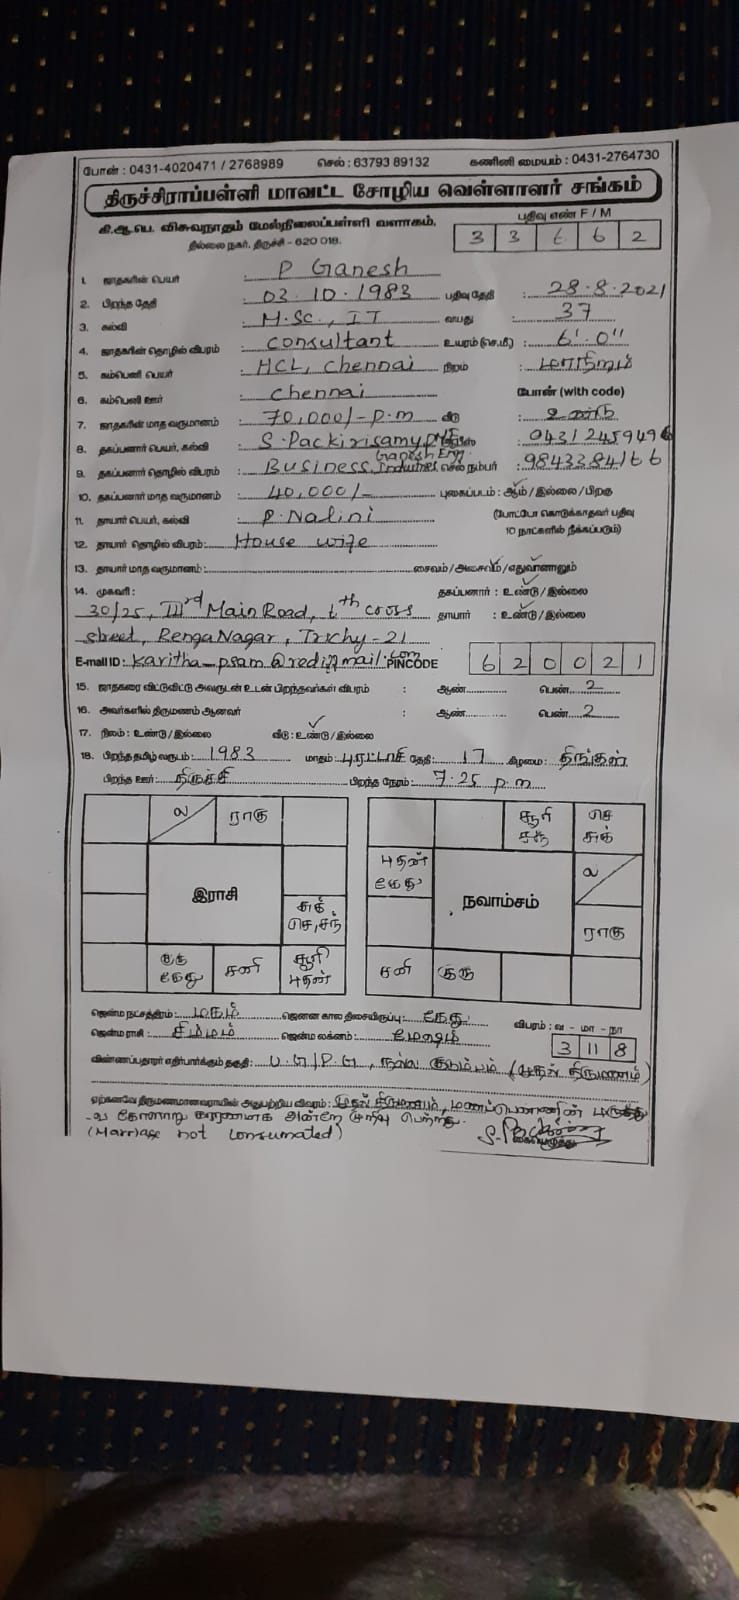 போன் : 0431-4020471 / 2768989 செல் : 63793 89132 கணினி மையம் : 0431-2764730
திருச்சிராப்பள்ளி மாவட்ட சோழிய வெள்ளாளர் சங்கம்
கி.ஆ.பெ. விசுவநாதம் மேல்நிலைப்பள்ளி வளாகம், பதிவு எண் F / M
தில்லை நகர், திருச்சி - 620 018. 3 3 6 6 2
1. ஜாதகரின் பெயர் : P Ganesh
2. பிறந்த தேதி : 03.10.1983 பதிவு தேதி : 28.8.2021
3. கல்வி : M.Sc., IT வயது : 37
4. ஜாதகரின் தொழில் விபரம் : Consultant உயரம் (செ.மீ) : 6'.0"
5. கம்பெனி பெயர் : HCL, Chennai நிறம் : மாநிறம்
6. கம்பெனி ஊர் : Chennai போன் (with code)
7. ஜாதகரின் மாத வருமானம் : 70,000/- p.m வீடு : உண்டு
8. தகப்பனார் பெயர், கல்வி : S. Packirisamy ஆபீஸ் : 0431 2459496
9. தகப்பனார் தொழில் விபரம் : Business, Ganesh Eng Industries செல் நம்பர் : 9843384166
10. தகப்பனார் மாத வருமானம் : 40,000/- புகைப்படம் : ஆம் / இல்லை / பிறகு
11. தாயார் பெயர், கல்வி : P. Nalini (போட்டோ கொடுக்காதவர் பதிவு
12. தாயார் தொழில் விபரம் : House wife 10 நாட்களில் நீக்கப்படும்)
13. தாயார் மாத வருமானம் : சைவம் / அசைவம் / எதுவானாலும்
14. முகவரி : தகப்பனார் : உண்டு / இல்லை
30/25, IIIrd Main Road, 6th cross தாயார் : உண்டு / இல்லை
street, Renga Nagar, Trichy - 21
E-mail ID : karitha_psam@rediffmail.com PINCODE 6 2 0 0 2 1
15. ஜாதகரை விட்டுவிட்டு அவருடன் உடன் பிறந்தவர்கள் விபரம் : ஆண் பெண் 2
16. அவர்களில் திருமணம் ஆனவர் : ஆண் பெண் 2
17. நிலம் : உண்டு / இல்லை வீடு : உண்டு / இல்லை
18. பிறந்த தமிழ் வருடம் : 1983 மாதம் புரட்டாசி தேதி : 17 கிழமை : திங்கள்
பிறந்த ஊர் : திருச்சி பிறந்த நேரம் : 7.25 p.m
ல ராகு
இராசி
சுக் செ, சந்
குரு கேது சனி சூரி புதன்
சூரி சந் செ சுக்
புதன் கேது ல
நவாம்சம்
ராகு
சனி குரு
ஜென்ம நட்சத்திரம் : மகம் ஜெனன கால திசையிருப்பு : கேது விபரம் : வ - மா - நா
ஜென்ம ராசி : சிம்மம் ஜென்ம லக்னம் : மேஷம் 3 11 8
விண்ணப்பதாரர் எதிர்பார்க்கும் தகுதி : U.G/P.G, நல்ல குடும்பம் (முதல் திருமணம்)
ஏற்கனவே திருமணமானவராயின் அதுபற்றிய விவரம் : முதல் திருமணம், மணப்பெண்ணின்
கோளாறு காரணமாக அன்றே முறிவு பெற்றது.
(Marriage not Consumated)
கையெழுத்து